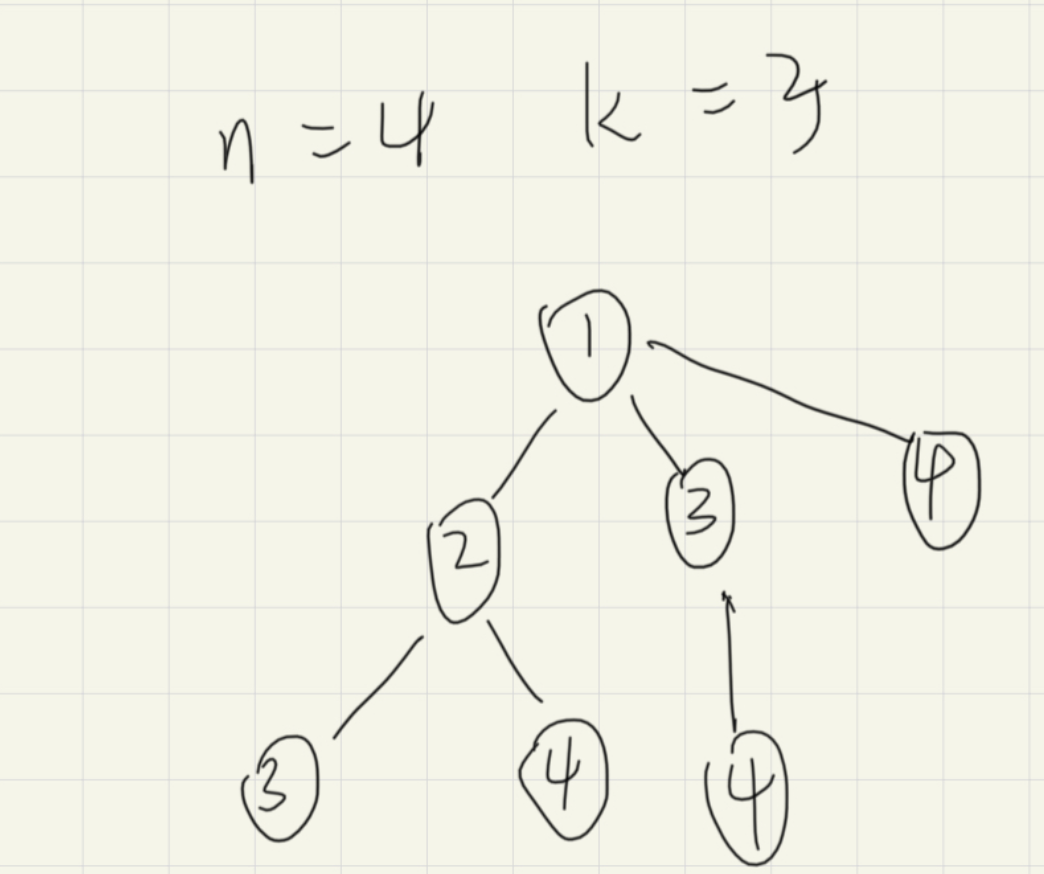 n = 4 k = 3
1
2 3 4
3 4 4